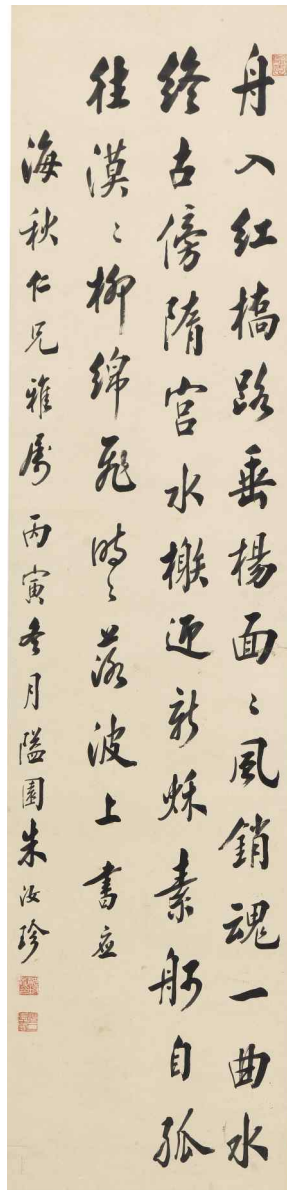 舟入紅橋路垂楊面〻風銷魂一曲水
終古傍隋宮水榭迎新秌素舸自孤
往漠〻柳綿飛時〻落波上書應
海秋仁兄雅屬 丙寅冬月隘園朱汝珍